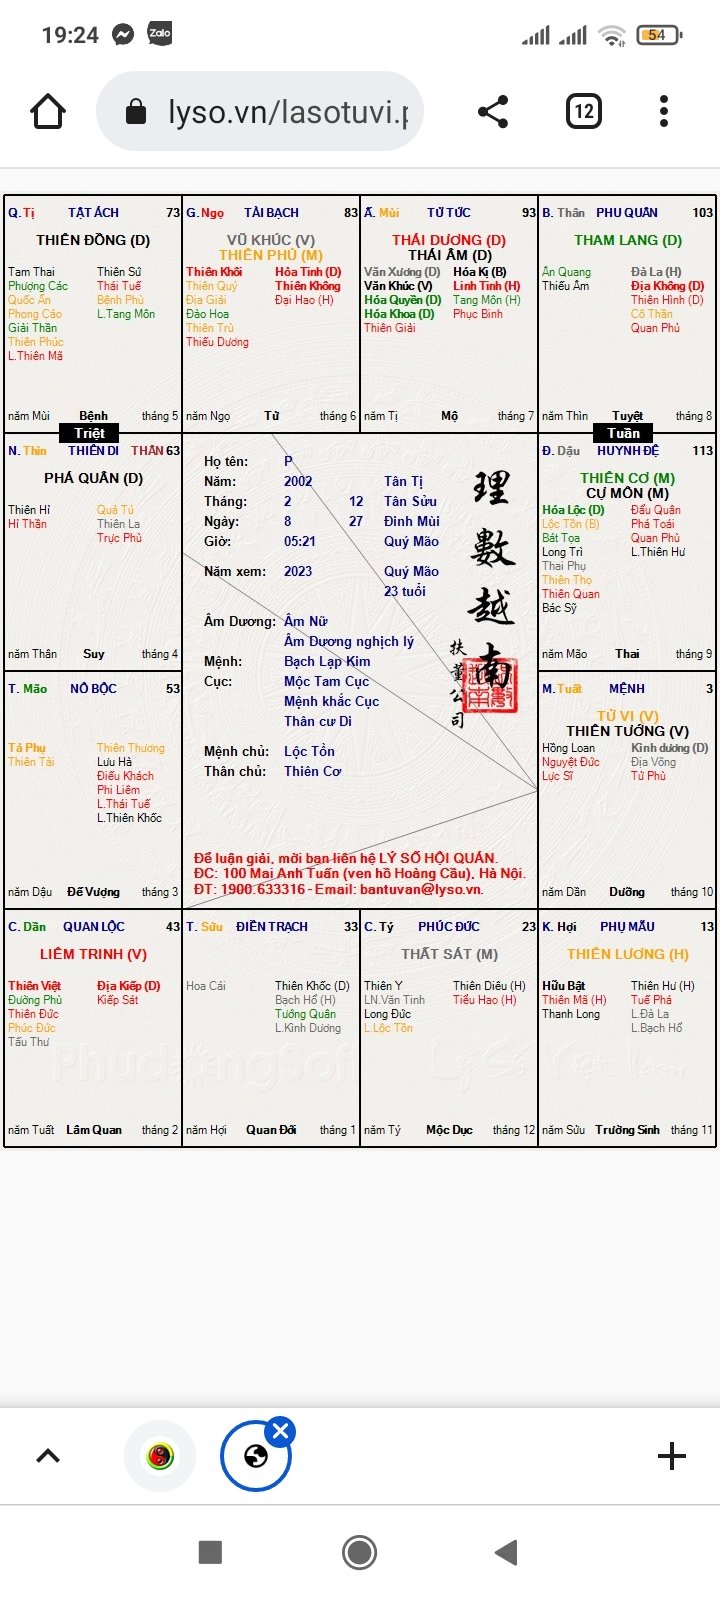 19:24
Zalo
54
lyso.vn/lasotuvi.p
12
Q. Tị TẬT ÁCH 73
THIÊN ĐỒNG (D)
Tam Thai Thiên Sứ
Phượng Các Thái Tuế
Quốc Ấn Bệnh Phù
Phong Cáo L.Tang Môn
Giải Thần
Thiên Phúc
L.Thiên Mã
năm Mùi Bệnh tháng 5
G. Ngọ TÀI BẠCH 83
VŨ KHÚC (V)
THIÊN PHỦ (M)
Thiên Khôi Hỏa Tinh (D)
Thiên Quý Thiên Không
Địa Giải Đại Hao (H)
Đào Hoa
Thiên Trù
Thiếu Dương
năm Ngọ Tử tháng 6
Ấ. Mùi TỬ TỨC 93
THÁI DƯƠNG (D)
THÁI ÂM (D)
Văn Xương (D) Hóa Kị (B)
Văn Khúc (V) Linh Tinh (H)
Hóa Quyền (D) Tang Môn (H)
Hóa Khoa (D) Phục Binh
Thiên Giải
năm Tị Mộ tháng 7
B. Thân PHU QUÂN 103
THAM LANG (D)
Ân Quang Đà La (H)
Thiếu Âm Địa Không (D)
Thiên Hình (D)
Cô Thần
Quan Phủ
năm Thìn Tuyệt tháng 8
Triệt
Tuần
N. Thìn THIÊN DI THÂN 63
PHÁ QUÂN (D)
Thiên Hỉ Quả Tú
Hỉ Thần Thiên La
Trực Phù
năm Thân Suy tháng 4
Họ tên: P
Năm: 2002 Tân Tị
Tháng: 2 12 Tân Sửu
Ngày: 8 27 Đinh Mùi
Giờ: 05:21 Quý Mão
Năm xem: 2023 Quý Mão
23 tuổi
Âm Dương: Âm Nữ
Âm Dương nghịch lý
Mệnh: Bạch Lạp Kim
Cục: Mộc Tam Cục
Mệnh khắc Cục
Thân cư Di
Mệnh chủ: Lộc Tồn
Thân chủ: Thiên Cơ
理數越南
扶董公司
Để luận giải, mời bạn liên hệ LÝ SỐ HỘI QUÁN.
ĐC: 100 Mai Anh Tuấn (ven hồ Hoàng Cầu), Hà Nội.
ĐT: 1900.633316 - Email: bantuvan@lyso.vn.
Đ. Dậu HUYNH ĐỆ 113
THIÊN CƠ (M)
CỰ MÔN (M)
Hóa Lộc (D) Đẩu Quân
Lộc Tồn (B) Phá Toái
Bát Tọa Quan Phù
Long Trì L.Thiên Hư
Thai Phụ
Thiên Thọ
Thiên Quan
Bác Sỹ
năm Mão Thai tháng 9
T. Mão NÔ BỘC 53
Tả Phụ Thiên Thương
Thiên Tài Lưu Hà
Điếu Khách
Phi Liêm
L.Thái Tuế
L.Thiên Khốc
năm Dậu Đế Vượng tháng 3
M. Tuất MỆNH 3
TỬ VI (V)
THIÊN TƯỚNG (V)
Hồng Loan Kình dương (D)
Nguyệt Đức Địa Võng
Lực Sĩ Tử Phù
năm Dần Dưỡng tháng 10
C. Dần QUAN LỘC 43
LIÊM TRINH (V)
Thiên Việt Địa Kiếp (D)
Đường Phù Kiếp Sát
Thiên Đức
Phúc Đức
Tấu Thư
năm Tuất Lâm Quan tháng 2
T. Sửu ĐIỀN TRẠCH 33
Hoa Cái Thiên Khốc (D)
Bạch Hổ (H)
Tướng Quân
L.Kình Dương
năm Hợi Quan Đới tháng 1
C. Tý PHÚC ĐỨC 23
THẤT SÁT (M)
Thiên Y Thiên Diêu (H)
LN.Văn Tinh Tiểu Hao (H)
Long Đức
L.Lộc Tồn
năm Tý Mộc Dục tháng 12
K. Hợi PHỤ MẪU 13
THIÊN LƯƠNG (H)
Hữu Bật Thiên Hư (H)
Thiên Mã (H) Tuế Phá
Thanh Long L.Đà La
L.Bạch Hổ
năm Sửu Trường Sinh tháng 11